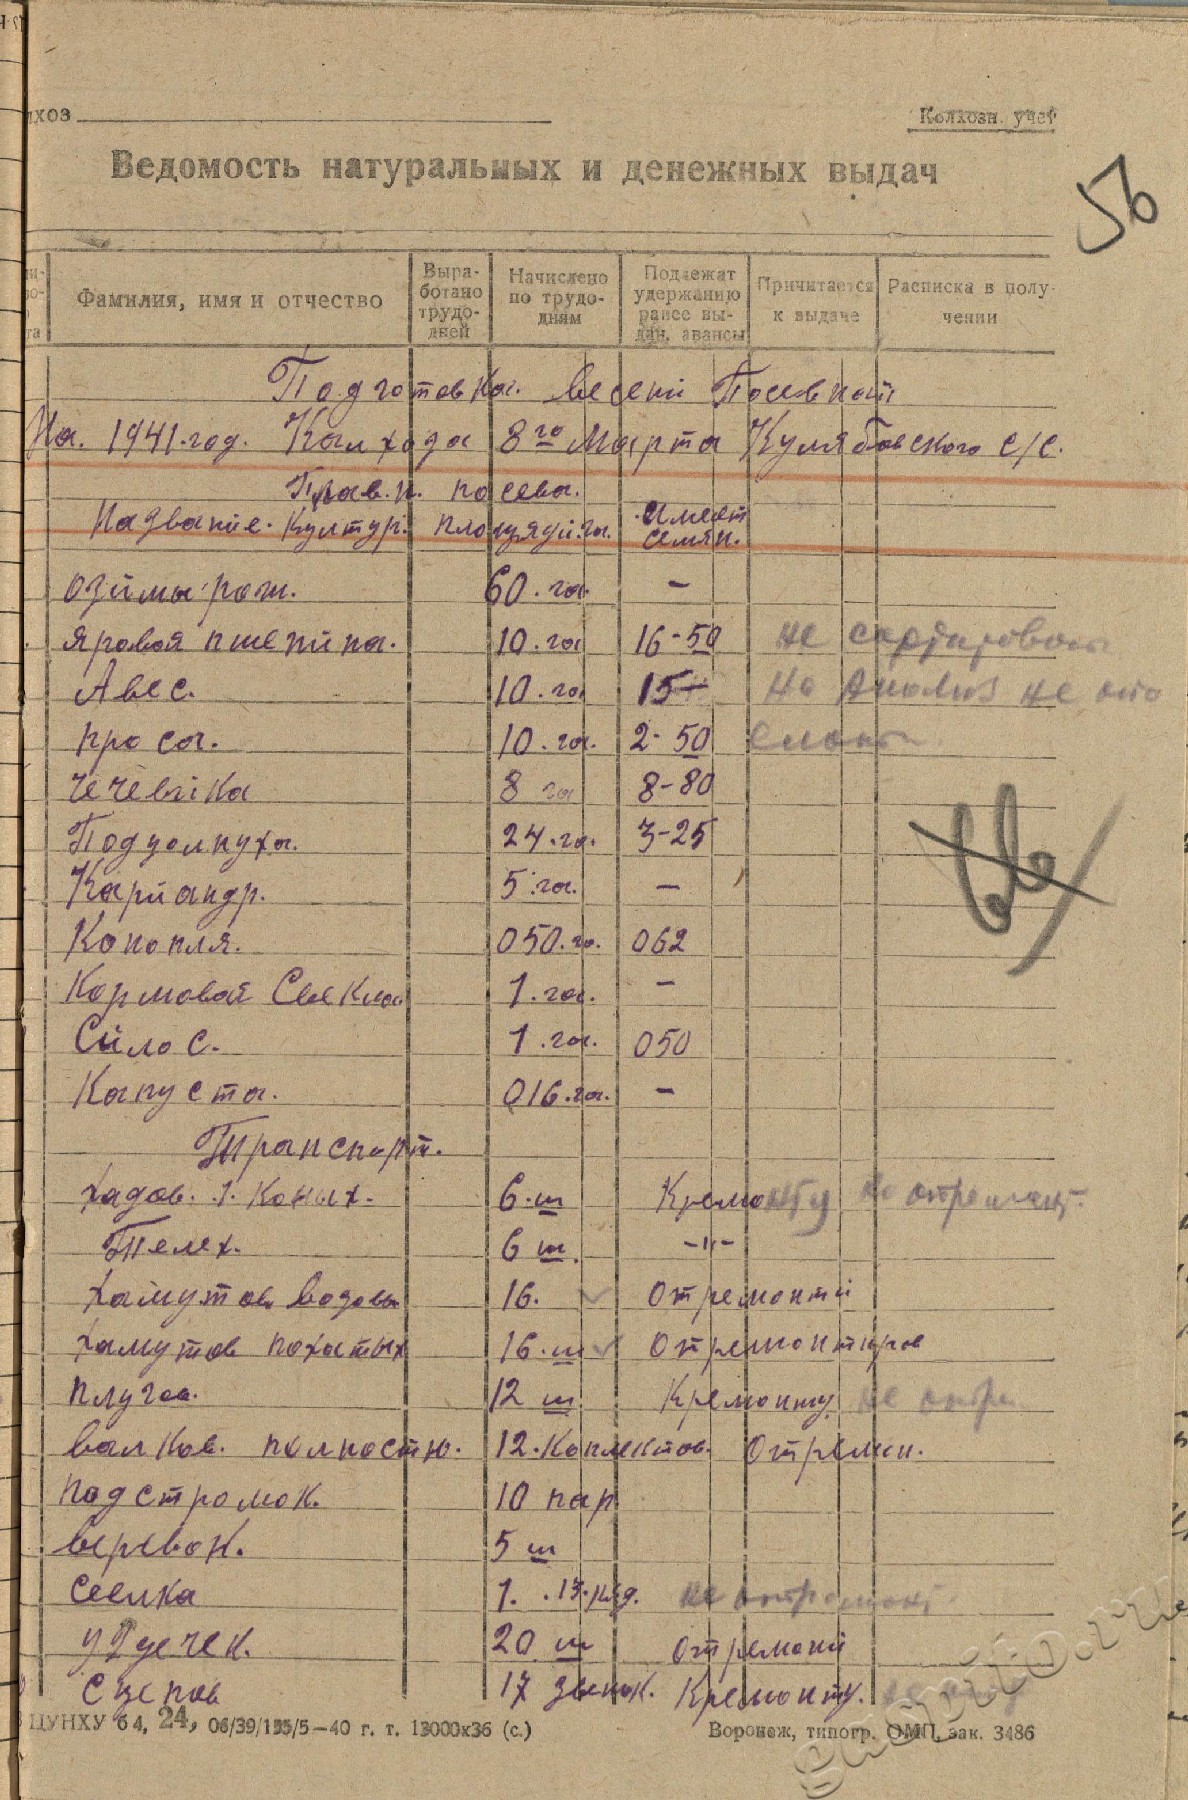 лхоз
Колхозн. учет
Ведомость натуральных и денежных выдач
56
Фамилия, имя и отчество
Выра-
ботано
трудо-
дней
Начислено
по трудо-
дням
Подлежат
удержанию
ранее вы-
дан. авансы
Причитается
к выдаче
Расписка в полу-
чении
Подготовка. Весени Посевной
На. 1941.год. Калхоза 8го Марта Кулябовского с/с.
посева.
Надвание. Култур. площяди.га. имеет семян.
озимы рож. 60.га. -
яровой пшенина. 10.га 16-50 не сортирована
Авес. 10.га 15- На Анализ не
проса. 10.га. 2-50
Чечевика 8 га 8-80
Подцолнуха. 24.га. 3-25
Кариандр. 5.га. -
Конопля. 050.га. 062
Кормовой Свекла 1.га. -
Силос. 1.га. 050
Капуста. 016.га. -
Транспорт.
хадов. 1. Коных. 6.ш Кремонту
Телех. 6 ш. -"-
Хамутов 16. Отремонти
хамутов похатых 16.ш Отремонтиров
плугов. 12 ш Кремонту не
валков. полностю. 12.Коплектов. Отремон.
подстромок. 10 пар
веревок. 5 ш
сеелка 1. .13.ряд. не
уздечек. 20 ш отремони
сцепов 17 звенок. Кремонту.
ЦУНХУ 64, 24, 06/39/155/5—40 г. т. 13000х36 (с.)
Воронеж, типогр. ОМП, зак. 3486
gaspito.ru